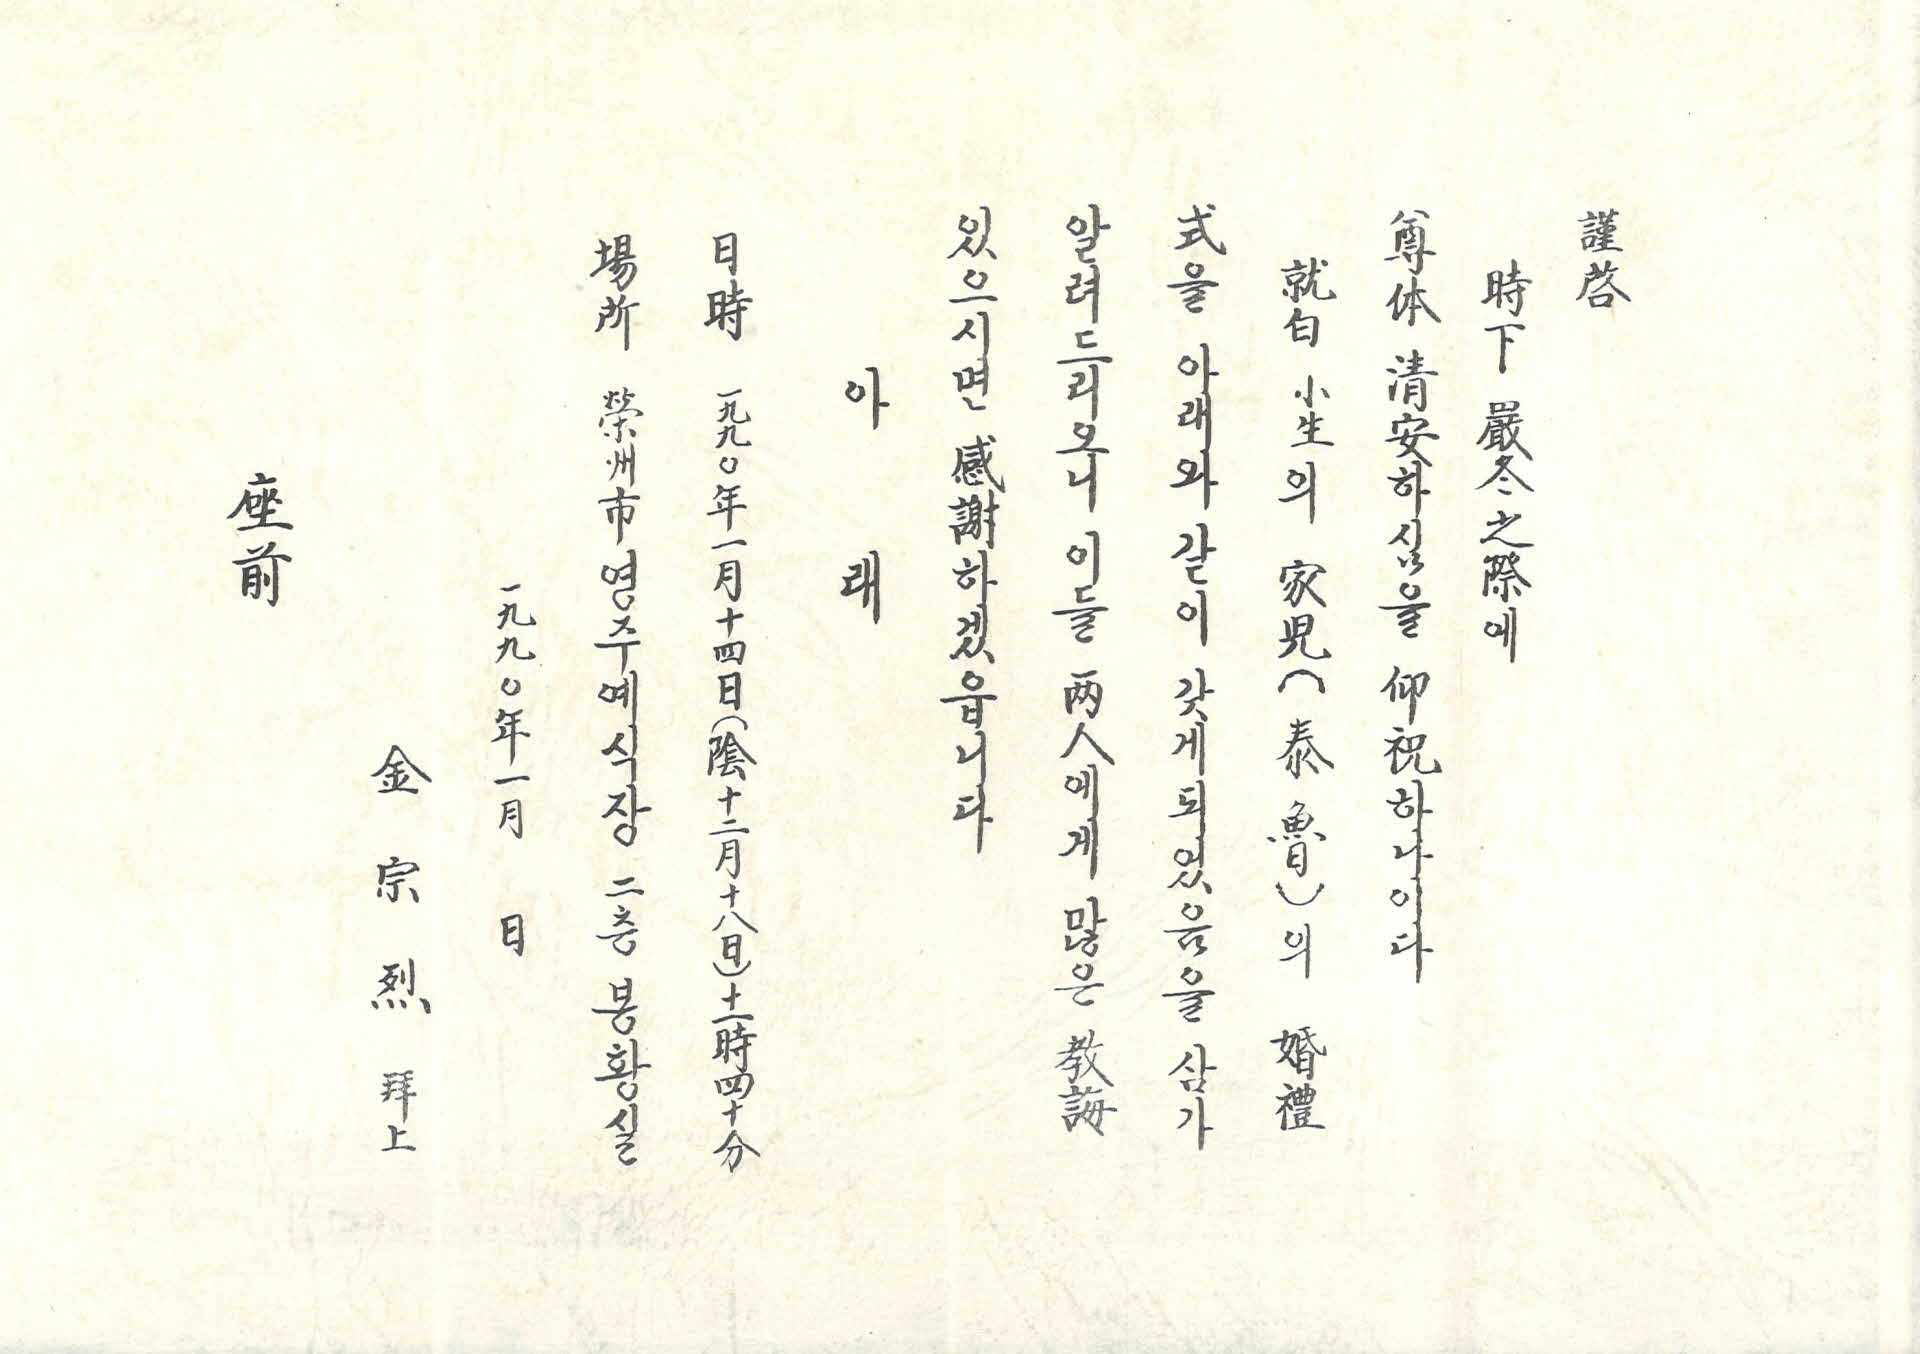 謹啓
時下 嚴冬之際에
尊体 清安하심을 仰祝하나이다
就白 小生의 家児(泰魯)의 婚禮
式을 아래와 같이 갖게되었음을 삼가
알려드리오니 이들 两人에게 많은 教誨
있으시면 感謝하겠읍니다
아 래
日時 一九九〇年一月十四日(陰十二月十八日)十一時四十分
場所 榮州市 영주예식장 二층 봉황실
一九九〇年一月 日
金宗烈 拜上
座前